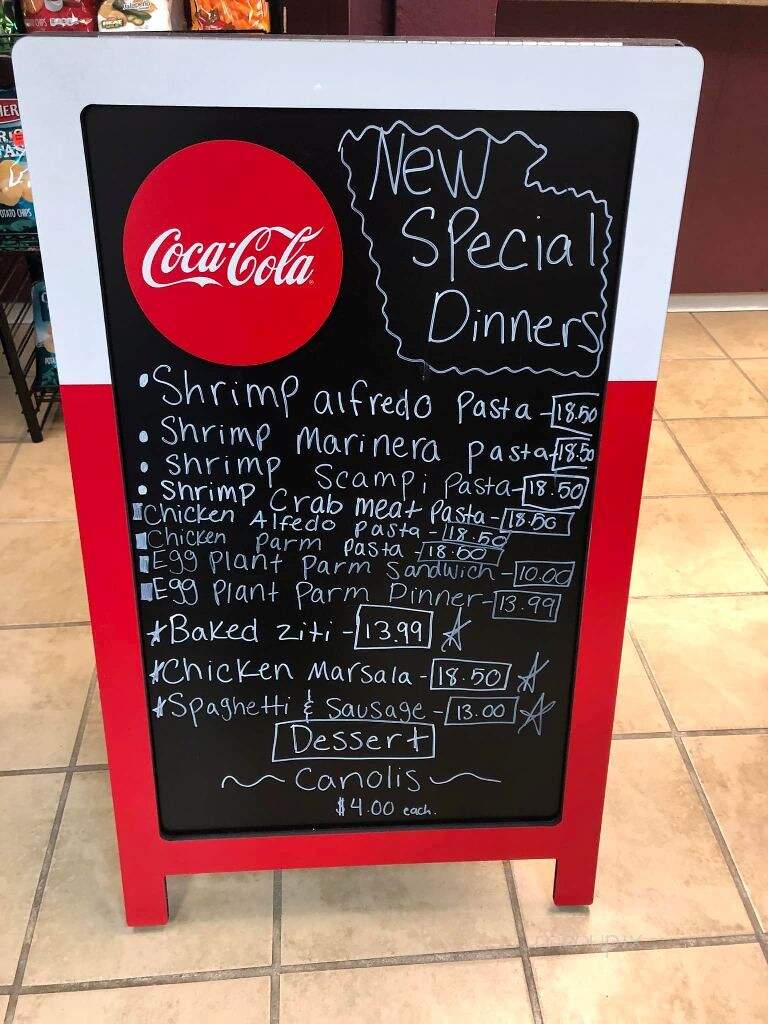 Jalapeño
CHIPS
HER
POTATO CHIPS
Coca-Cola
New
Special
Dinners
• Shrimp alfredo Pasta - 18.50
• Shrimp Marinera pasta - 18.50
• Shrimp Scampi Pasta - 18.50
• Shrimp Crab meat Pasta - 18.50
Chicken Alfedo pasta - 18.50
Chicken Parm pasta - 18.50
Egg Plant Parm Sandwich - 10.00
Egg Plant Parm Dinner - 13.99
Baked ziti - 13.99
Chicken Marsala - 18.50
Spaghetti & Sausage - 13.00
Dessert
~ Canolis ~
$4.00 each.